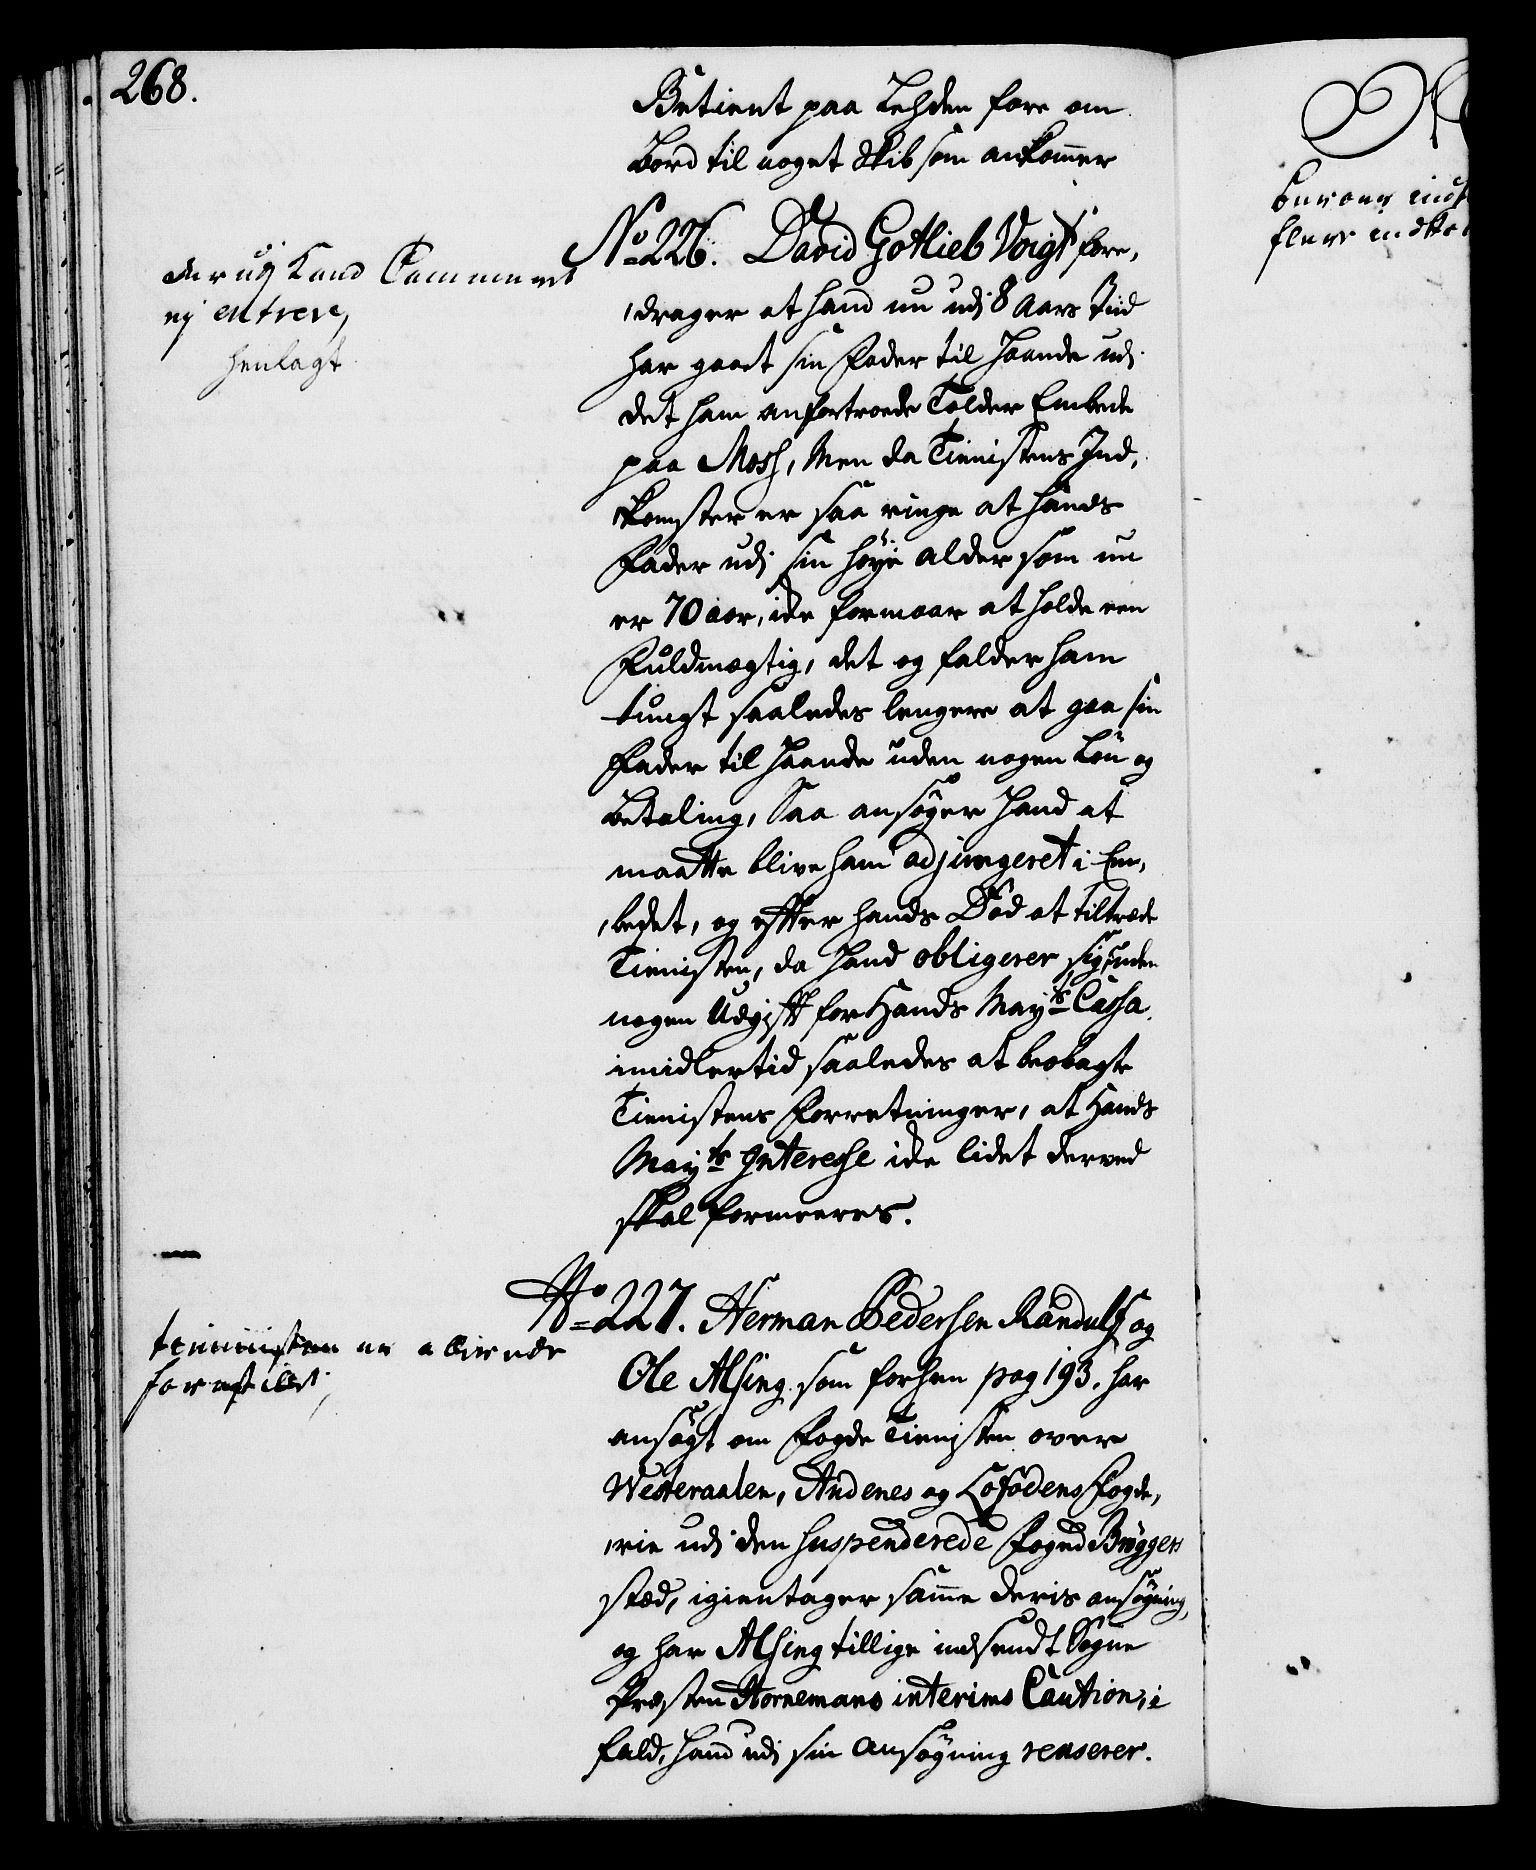 268.
Betient paa Lehden fare om
bord til noget Skib som ankommer
No 226. David Gotlieb Voigt fore,
drager at hand nu udi 8 Aars Tiid
har gaaet sin Fader til Haande udi
det ham anfortroede Tolder Embede
paa Moss, Men da Tienistens Ind,
komster er saa ringe at hands
Fader udi sin høye alder som nu
er 70 aar, icke formaar at holde een
Fuldmegtig, det og falder ham
tungt saaledes lengere at gaa sin
Fader til Haande uden nogen Løn og
betaling, Saa ansøger Hand at
maatte blive ham adjungeret i Em,
bedet, og effter hands Død at tiltræde
Tienisten, da Hand obligerer sig, uden
nogen Udgifft for Hands Mayts Cassa
imidlertid saaledes at beobagte
Tienistens Forretninger, at Hands
Mayts Interesse icke lidet derved
skal formeeres.
der udj kand Cammeret
ej entrere,
henlagt.
No 227. Herman Pedersen Randulf og
Ole Alsing som forhen pag 193. har
ansøgt om Fogde Tienisten over
Westeraalen, Andenes og Lofodens Fogde,
rie udi den suspenderede Foged Brøggers
stæd, igientager samme deris ansøgning,
og har Alsing tillige indsendt Sogne
Præsten Hornemans interims Caution, i
fald, hand udi sin ansøgning reuserer.
tiennisten er allerede
forestillet.